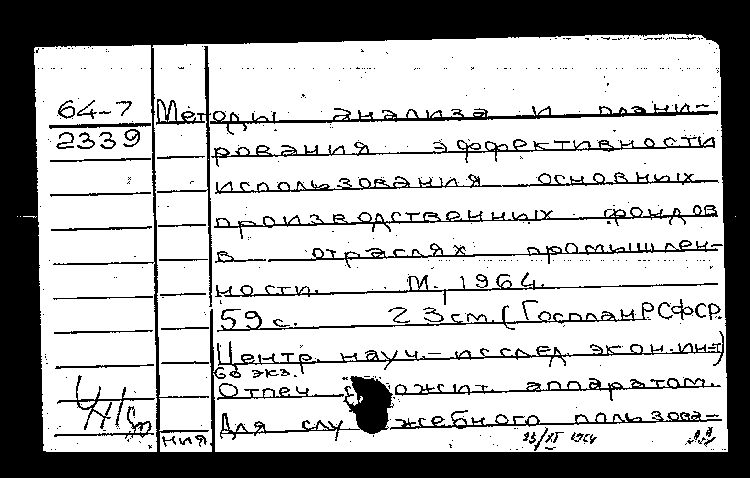 64-7 Методы анализа и плани-
2339 рования эффективности
использования основных
производственных фондов
в отраслях промышлен-
ности. М., 1964.
59 с. 23 см. (Госплан РСФСР.
Центр. науч.-исслед. экон. ин-т)
60 экз.
Отпеч. множит. аппаратом.
Для служебного пользова-
ния 23/XI 1964